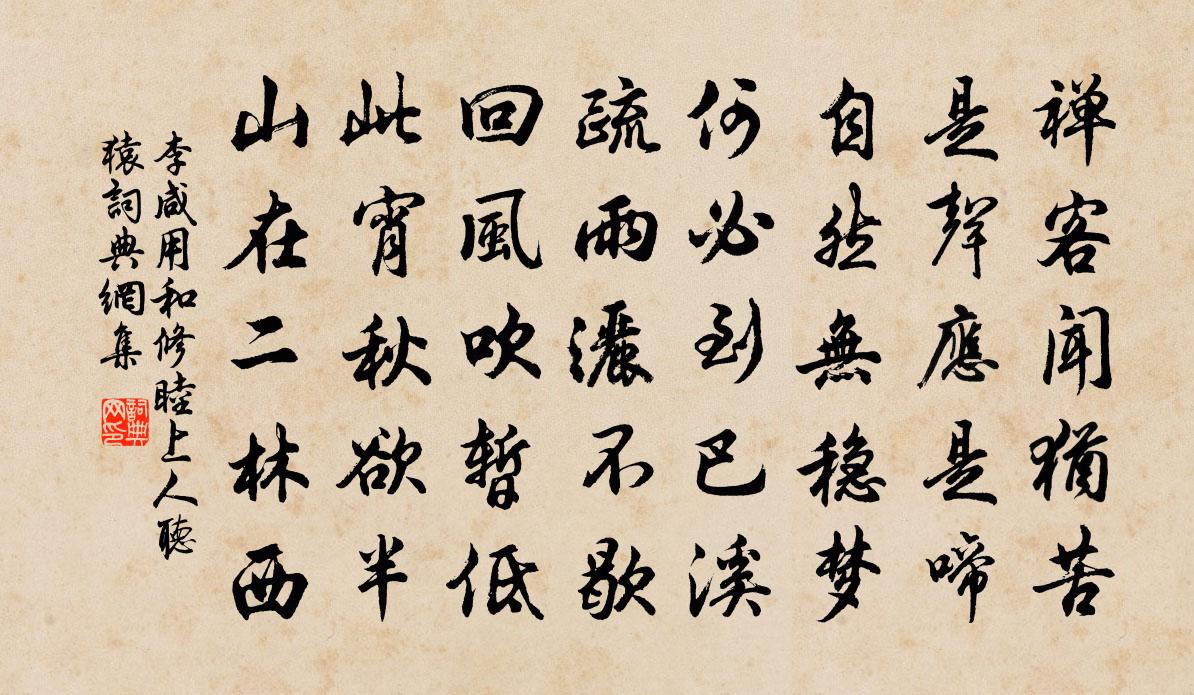 禅客闻猶苦
是聲應是啼
自然無穏梦
何必到巴溪
疏雨灑不歇
回風吹暫低
此宵秋欲半
山在二林西
李咸用和修睦上人聴
猿詞典網集
詞典网印